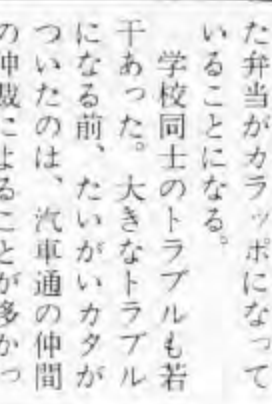 た弁当がカラッポになって
いることになる。
学校同士のトラブルも若
干あった。大きなトラブル
になる前、たいがいカタが
ついたのは、汽車通の仲間
の仲裁によることが多かっ